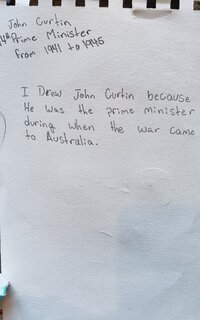 John Curtin
14th Prime Minister
from 1941 to 1945
I Drew John Curtin because
He was the prime minister
during when the war came
to Australia.